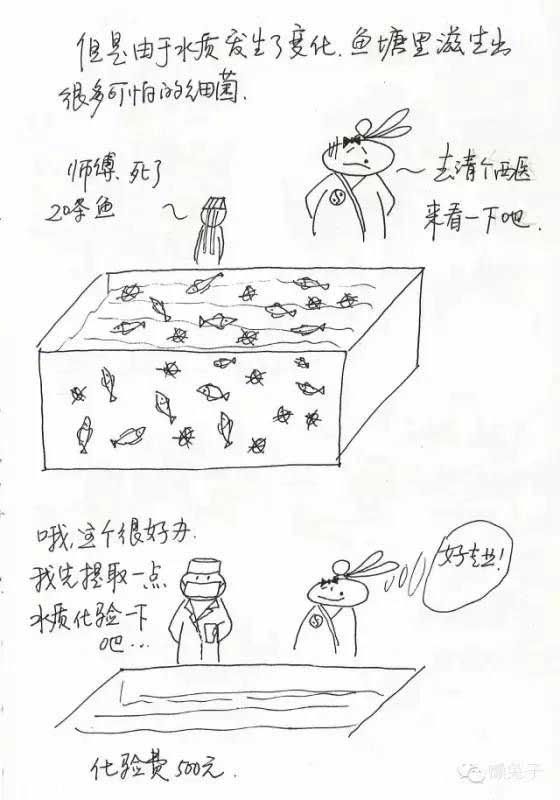 但是由于水质发生了变化.鱼塘里滋生出
很多可怕的细菌.
师缚、死了
20条鱼
去请个西医
来看一下吧.
哦,这个很好办.
我先提取一点
水质化验一下
吧...
好专业!
化验费500元.
懒兔子